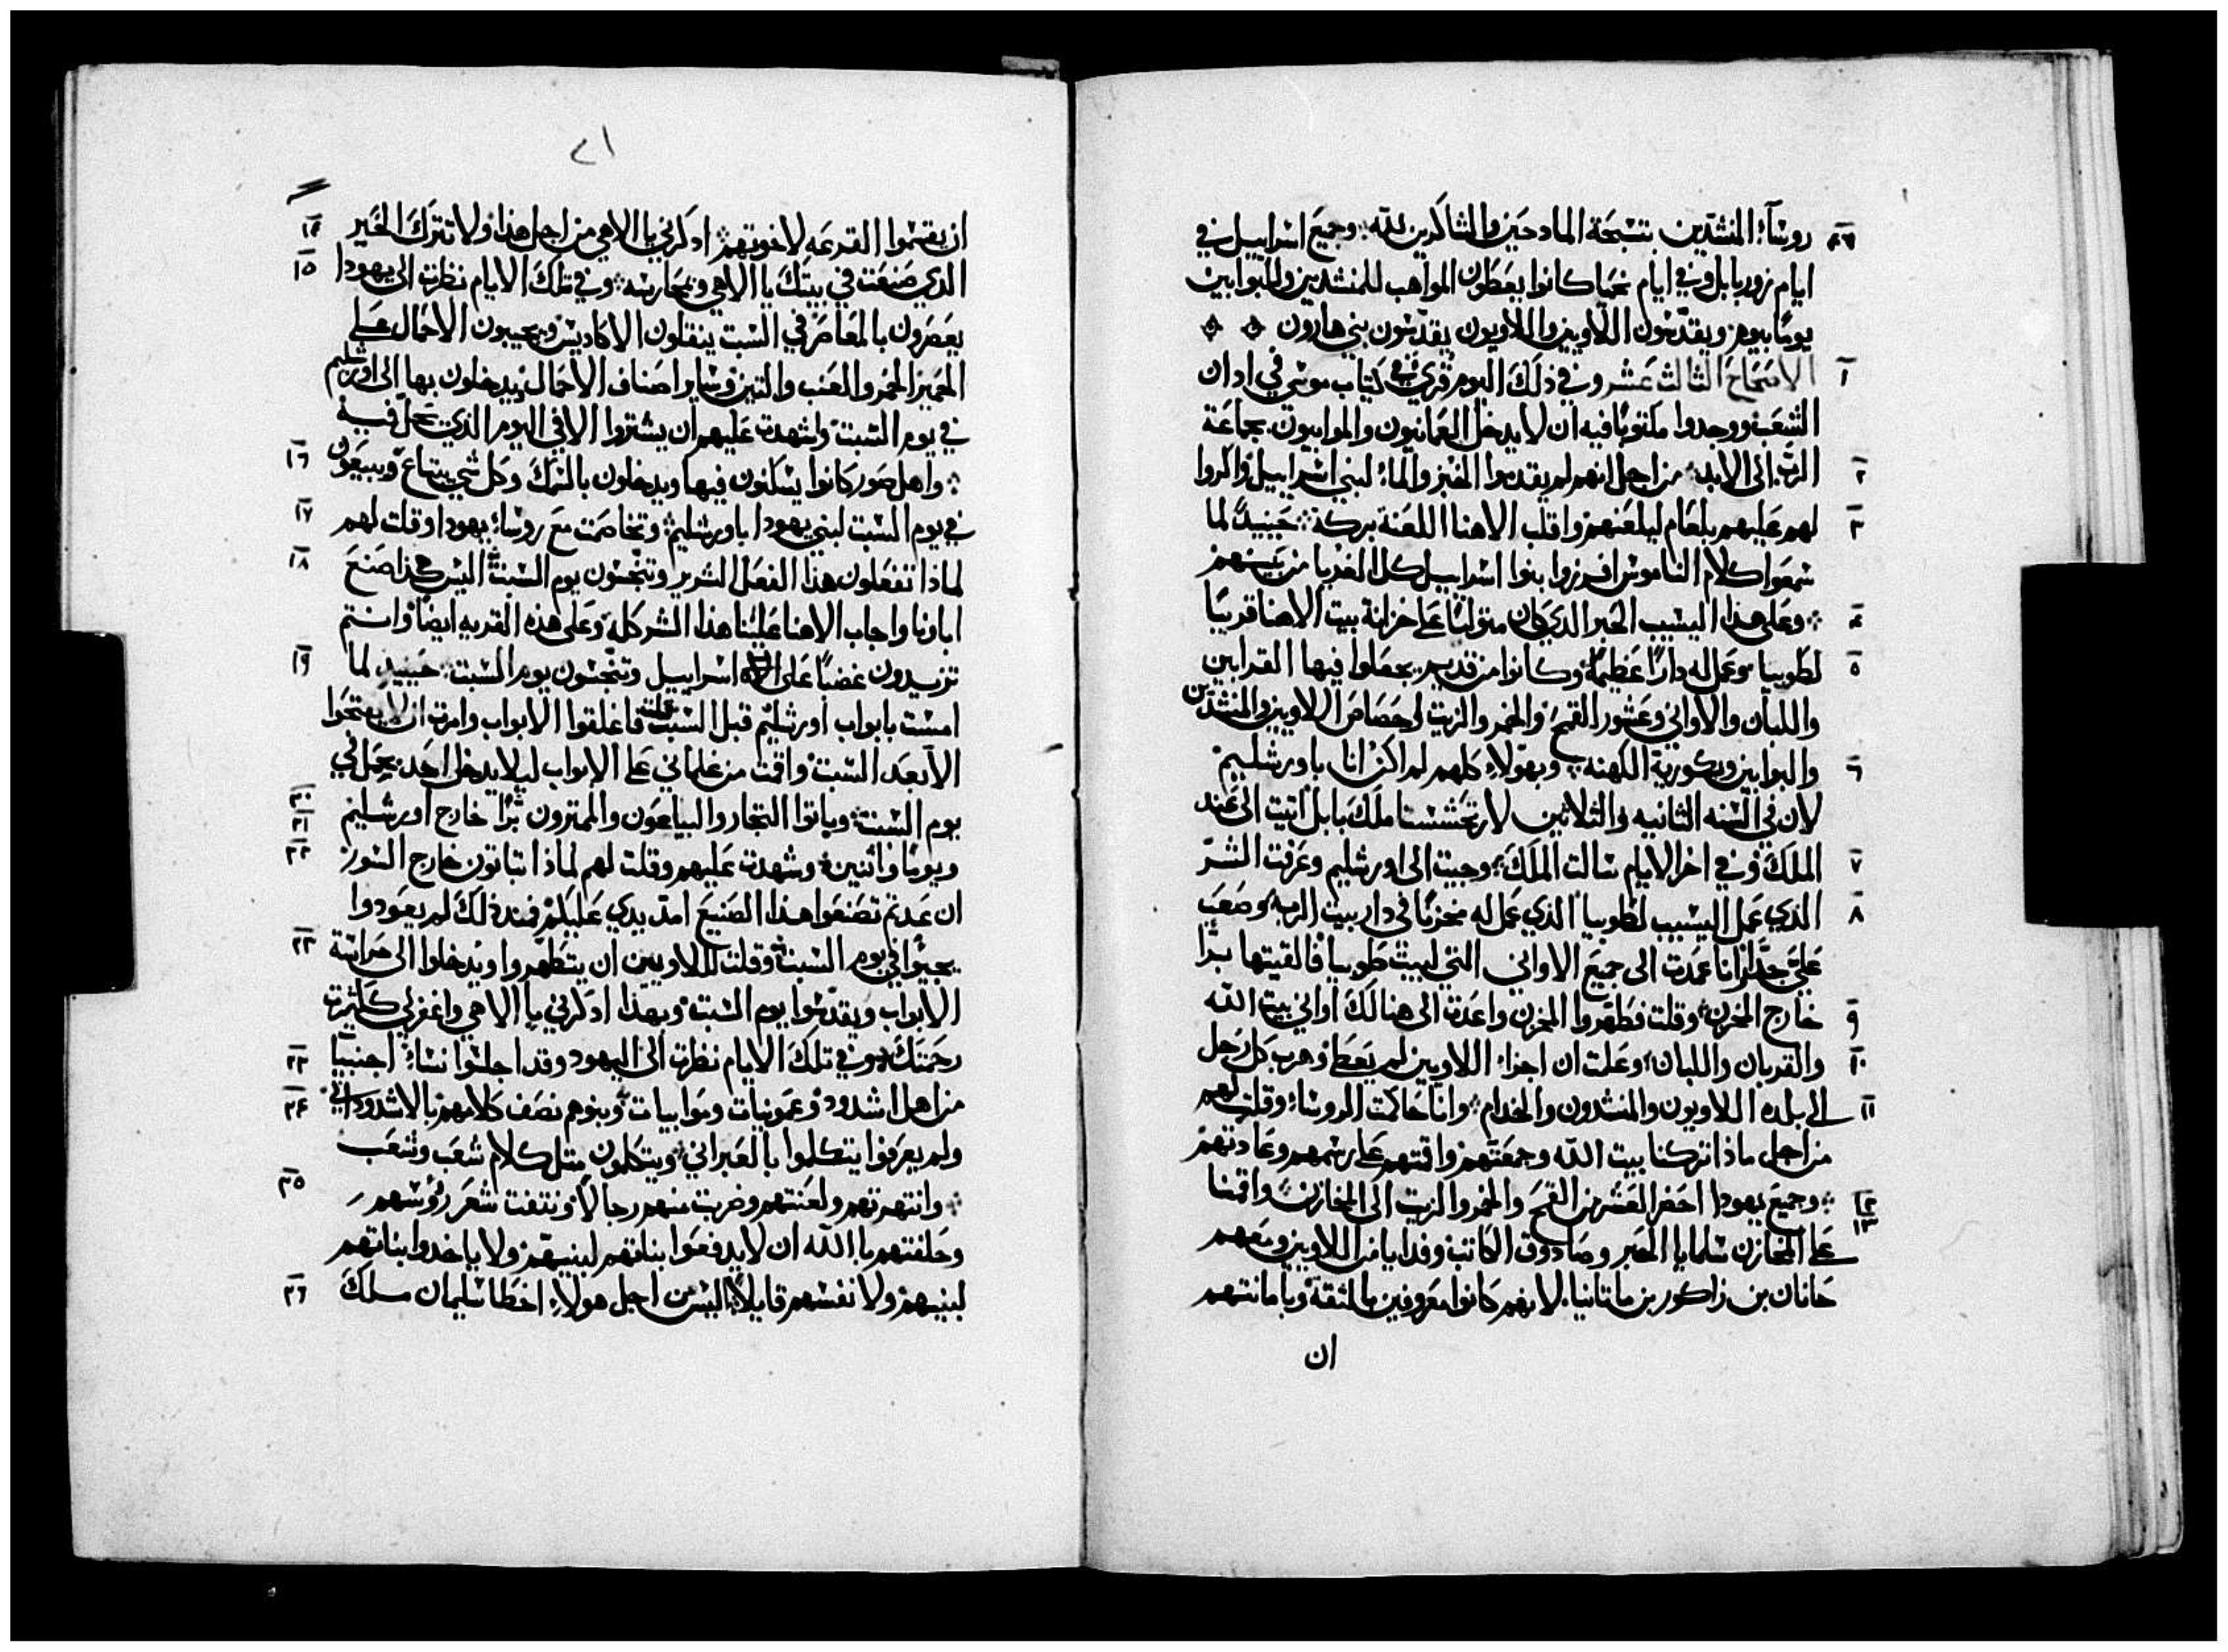 ٤٧ روسآء المنشدين بتسبحة المادحين والشاكرين لله وجميع اسراييل في
ايام زوربابل وفي ايام نحميا كانوا يعطون المواهب للمنشدين والبوابين
يومًا بيوم ويقدسون اللاويين واللاويون يقدسون بني هارون
١ الاصحاح الثالث عشر وفي ذلك اليوم قري في كتاب موسي في ادان
الشعب ووجدوا مكتوبًا فيه ان لا يدخل العمانيون والموابيون بجماعة
٢ الرب الى الابد من اجل انهم لم يقدموا الخبز والماء لبني اسراييل واكروا
٣ لهم عليهم بلعام ليلعنهم واقلب الاهنا اللعنة بركة حينيدٍ لما
سمعوا كلام الناموس افرزوا بنوا اسراييل كل الغربا من بينهم
٤ وعلى هذا اليشيب الحبر الدي كان متوليًا على خزانة بيت الاهنا قريبًا
٥ لطوبيا وعمل له دارًا عظيمة وكانوا من قديم يجعلوا فيها القرابين
واللبان والاواني وعشور القمح والخمر والزيت لحصاص اللاويين والمنشدين
٦ والبوابين وبكورية الكهنه وبهولاء كلهم لم اكن انا باورشليم
لان في السنه الثانيه والثلاثين لارتحششتا ملك بابل اتيت الى عند
٧ الملك وفي اخر الايام سالت الملك وجيت الى اورشليم وعرفت الشر
٨ الذي عمل اليشيب لطوبيا الذي عمل له مخزنًا في دار بيت الرب وصعب
عليّ جدًا وانا عمدت الى جميع الاواني التي لبيت طوبيا فالقيتها برّا
٩ خارج المخزن وقلت فطهروا المخزن واعدت الى هنالك اواني بيت الله
١٠ والقربان واللبان وعلمت ان اجزاء اللاويين لم يعط وهرب كل رجل
١١ الى بلده اللاويون والمنشدون والخدام وانا حاكمت الروساء وقلت لهم
من اجل ماذا تركنا بيت الله وجمعتهم واقمتهم على رسمهم وعادتهم
١٢ وجميع يهودا احضر العشر من القمح والخمر والزيت الى المخازن واقمنا
١٣ على المخازن شلمايا الحبر وصادوق الكاتب وفدايا من اللاويين ومعهم
حانان بن زاكور بن ماتانيا لانهم كانوا معروفين بالثقة وبامانتهم
ان
٢١
١٤ ان يقتسموا القرعه لاخوتهم ادكرني يا الاهي من اجل هذا ولا تترك الخير
١٥ الدي صنعت في بيتك يا الاهي وبحارسه وفي تلك الايام نظرت الى يهودا
يعصرون بالمعاصر في السبت ينقلون الاكاديس ويجيبون الاحمال على
الحمير الخمر والعنب والتين وساير اصناف الاحمال يدخلون بها الى اورشليم
في يوم السبت واشهدت عليهم ان يشتروا الا في اليوم الذي يحل فيه
١٦ واهل صور كانوا يسكنون فيها ويدخلون بالسمك وكل شي يبتاع ويبيعون
١٧ في يوم السبت لبني يهودا باورشليم وتخاصمت مع روساء يهودا وقلت لهم
١٨ لماذا تفعلون هذا الفعل الشرير وتنجسون يوم السبت اليس هكذا صنع
اباونا واجاب الاهنا علينا هذا الشر كله وعلى هذه القريه ايضًا وانتم
١٩ تزيدون غضبًا على اسراييل وتنجسون يوم السبت حينيدٍ لما
امست بابواب اورشليم قبل السبت قلت فاغلقوا الابواب وامرت ان لا يفتحوا
الا بعد السبت واقمت من غلماني على الابواب ليلا يدخل احد بحمل في
٢٠ يوم السبت وباتوا التجار والبياعون والممترون برًا خارج اورشليم
٢١ ويومًا واثنين وشهدت عليهم وقلت لهم لماذا تباتون خارج السور
٢٢ ان عدتم تصنعوا هذا الصنيع امد يدي عليكم فمند ذلك لم يعودوا
٢٣ يجيوا في يوم السبت وقلت للاويين ان يتطهروا ويدخلوا الى حراسة
الابواب ويقدسوا يوم السبت وبهذا ادكرني يا الاهي واغفر لي ككثرت
٢٣ رحمتك وفي تلك الايام نظرت الى اليهود وقد اجلسوا نساء اجنبيا
٢٤ من اهل اشدود وعمونيات وموابيات وبنوهم نصف كلامهم بالاشدوداني
ولم يعرفوا يتكلموا بالعبراني ويتكلمون مثل كلام شعب وشعب
٢٥ وانتهرتهم ولعنتهم وضربت منهم رجالًا ونتفت شعر رؤسهم
وحلفتهم بالله ان لا يدفعوا بناتهم لبنيهم ولا ياخدوا بناتهم
٢٦ لبنيهم ولا نفسهم قايلًا اليس من اجل هولاء اخطا سليمان ملك